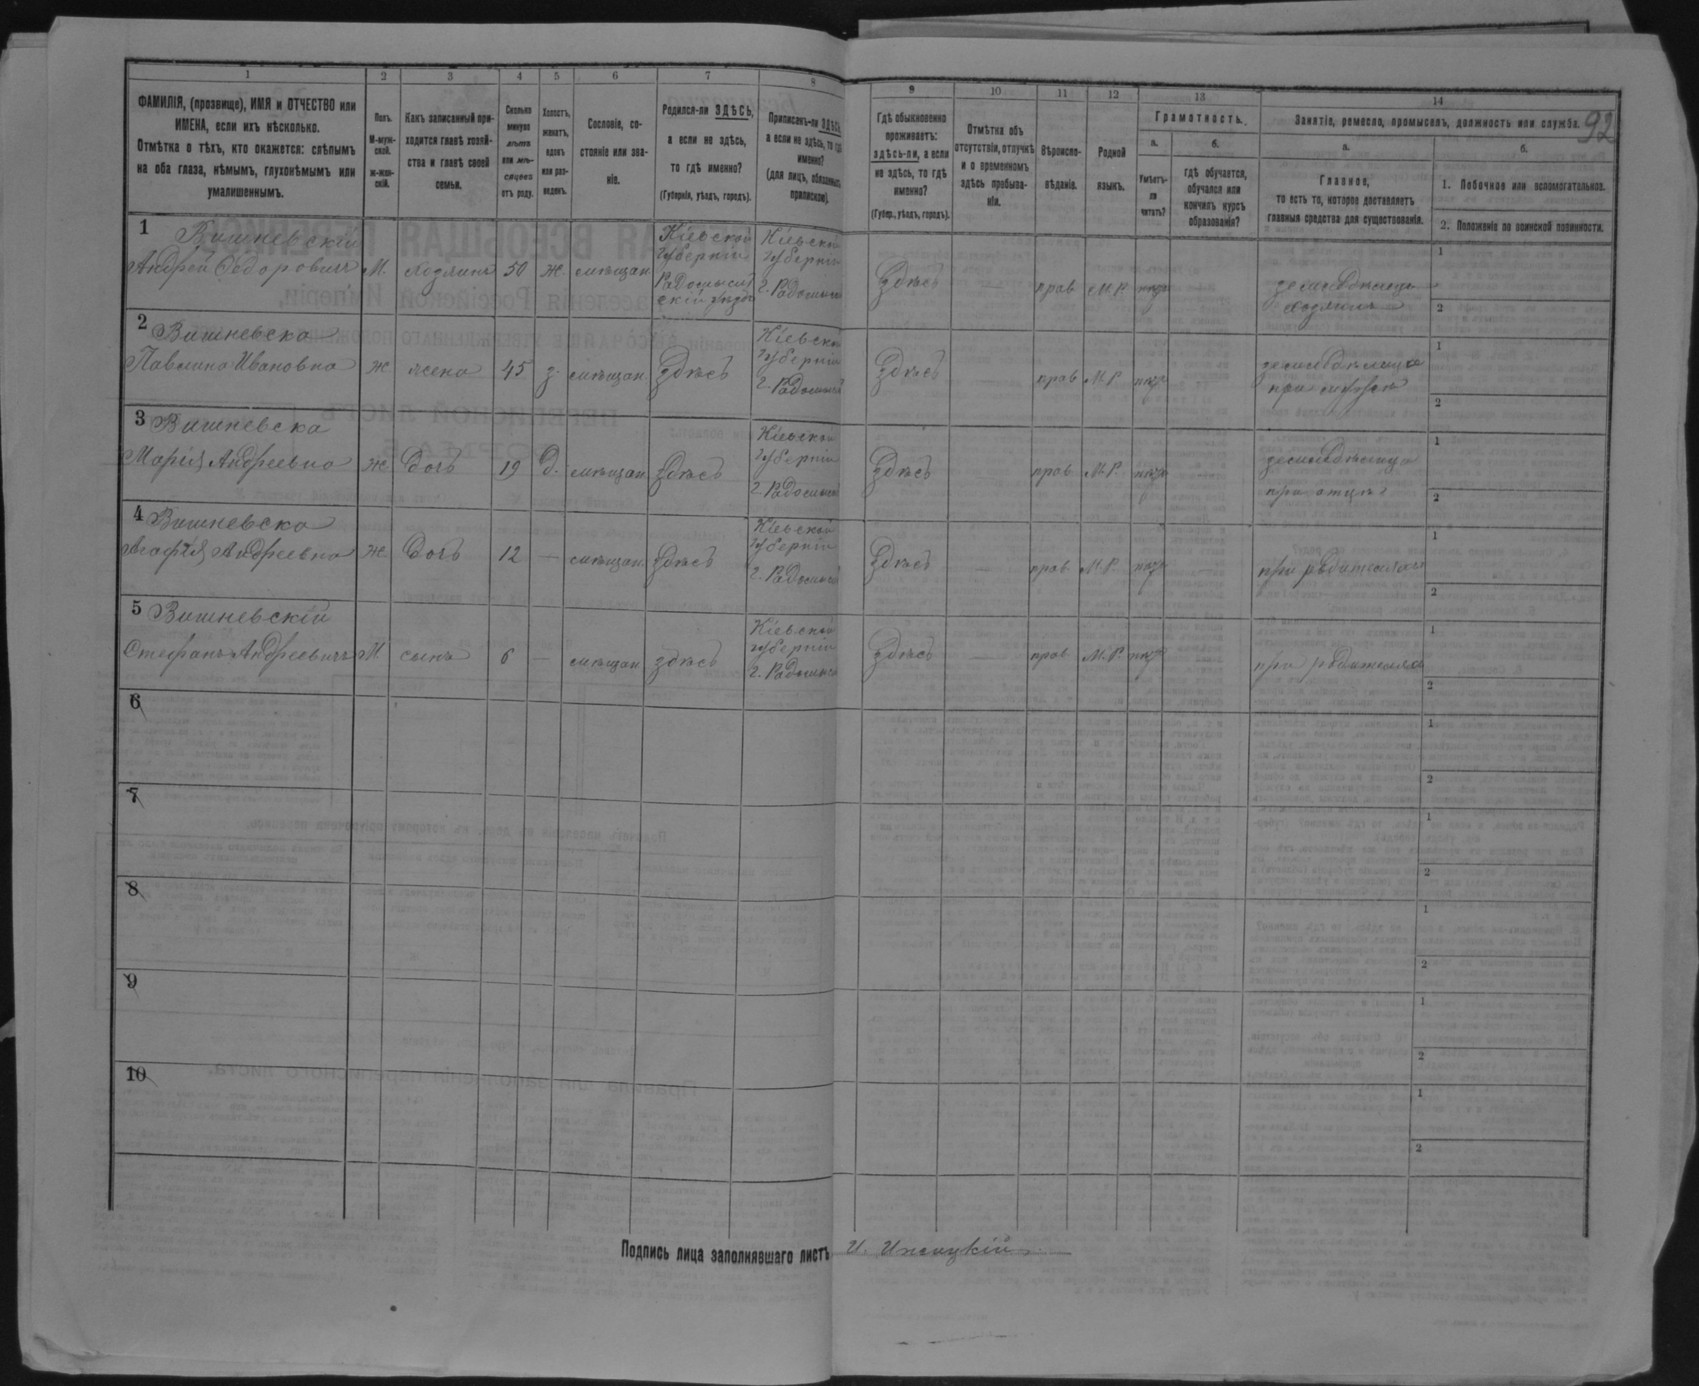 1 2 3 4 5 6 7 8 9 10 11 12 13 14
ФАМИЛІЯ, (прозвище), ИМЯ и ОТЧЕСТВО или
ИМЕНА, если ихъ нѣсколько.
Отмѣтка о тѣхъ, кто окажется: слѣпымъ
на оба глаза, нѣмымъ, глухонѣмымъ или
умалишеннымъ.
Полъ.
М-муж-
ской.
ж-жен-
скій.
Какъ записанный при-
ходится главѣ хозяй-
ства и главѣ своей
семьи.
Сколько
минуло
лѣтъ
или мѣ-
сяцевъ
отъ роду.
Холостъ,
женатъ,
вдовъ
или раз-
веденъ.
Сословіе, со-
стояніе или зва-
ніе.
Родился-ли ЗДѢСЬ,
а если не здѣсь,
то гдѣ именно?
(Губернія, уѣздъ, городъ).
Приписанъ-ли ЗДѢСЬ,
а если не здѣсь, то гдѣ
именно?
(для лицъ, обязанныхъ
припискою).
Гдѣ обыкновенно
проживаетъ:
здѣсь-ли, а если
не здѣсь, то гдѣ
именно?
(Губер., уѣздъ, городъ).
Отмѣтка объ
отсутствіи, отлучкѣ
и о временномъ
здѣсь пребыва-
ніи.
Вѣроиспо-
вѣданіе.
Родной
языкъ.
Грамотность.
а.
Умѣетъ-
ли
читать?
б.
гдѣ обучается,
обучался или
кончилъ курсъ
образованія?
Занятіе, ремесло, промыселъ, должность или служба.
92
а.
Главное,
то есть то, которое доставляетъ
главныя средства для существованія.
б.
1. Побочное или вспомогательное.
2. Положеніе по воинской повинности.
1 Вишневскій
Андрей Ѳедоровичъ М. хозяинъ 50 ж. мѣщан.
Кіевской
губерніи
Радомысл
скій уѣздъ
Кіевской
губерніи
г. Радомысл
Здѣсь — прав М.Р.
хозяинъ
1
2
2 Вишневска
Павлина Ивановна ж жена 45 з. мѣщан здѣсь
Кіевской
губерніи
г. Радомысл
Здѣсь — прав М.Р.
1
2
3 Вишневска
Марія Андреевна ж дочь 19 д. мѣщан здѣсь
Кіевской
губерніи
г. Радомысл
Здѣсь — прав М.Р.
при отцѣ
1
2
4 Вишневска
Агафія Андреевна ж дочь 12 — мѣщан. здѣсь
Кіевской
губерніи
г. Радомысл
Здѣсь — прав М.Р.
при родителях
1
2
5 Вишневскій
Стефанъ Андреевичъ М сынъ 6 — мѣщан здѣсь
Кіевской
губерніи
г. Радомысл
Здѣсь — прав М.Р.
при родителях
1
2
6
1
2
7
1
2
8
1
2
9
1
2
10
1
2
Подпись лица заполнявшаго листъ